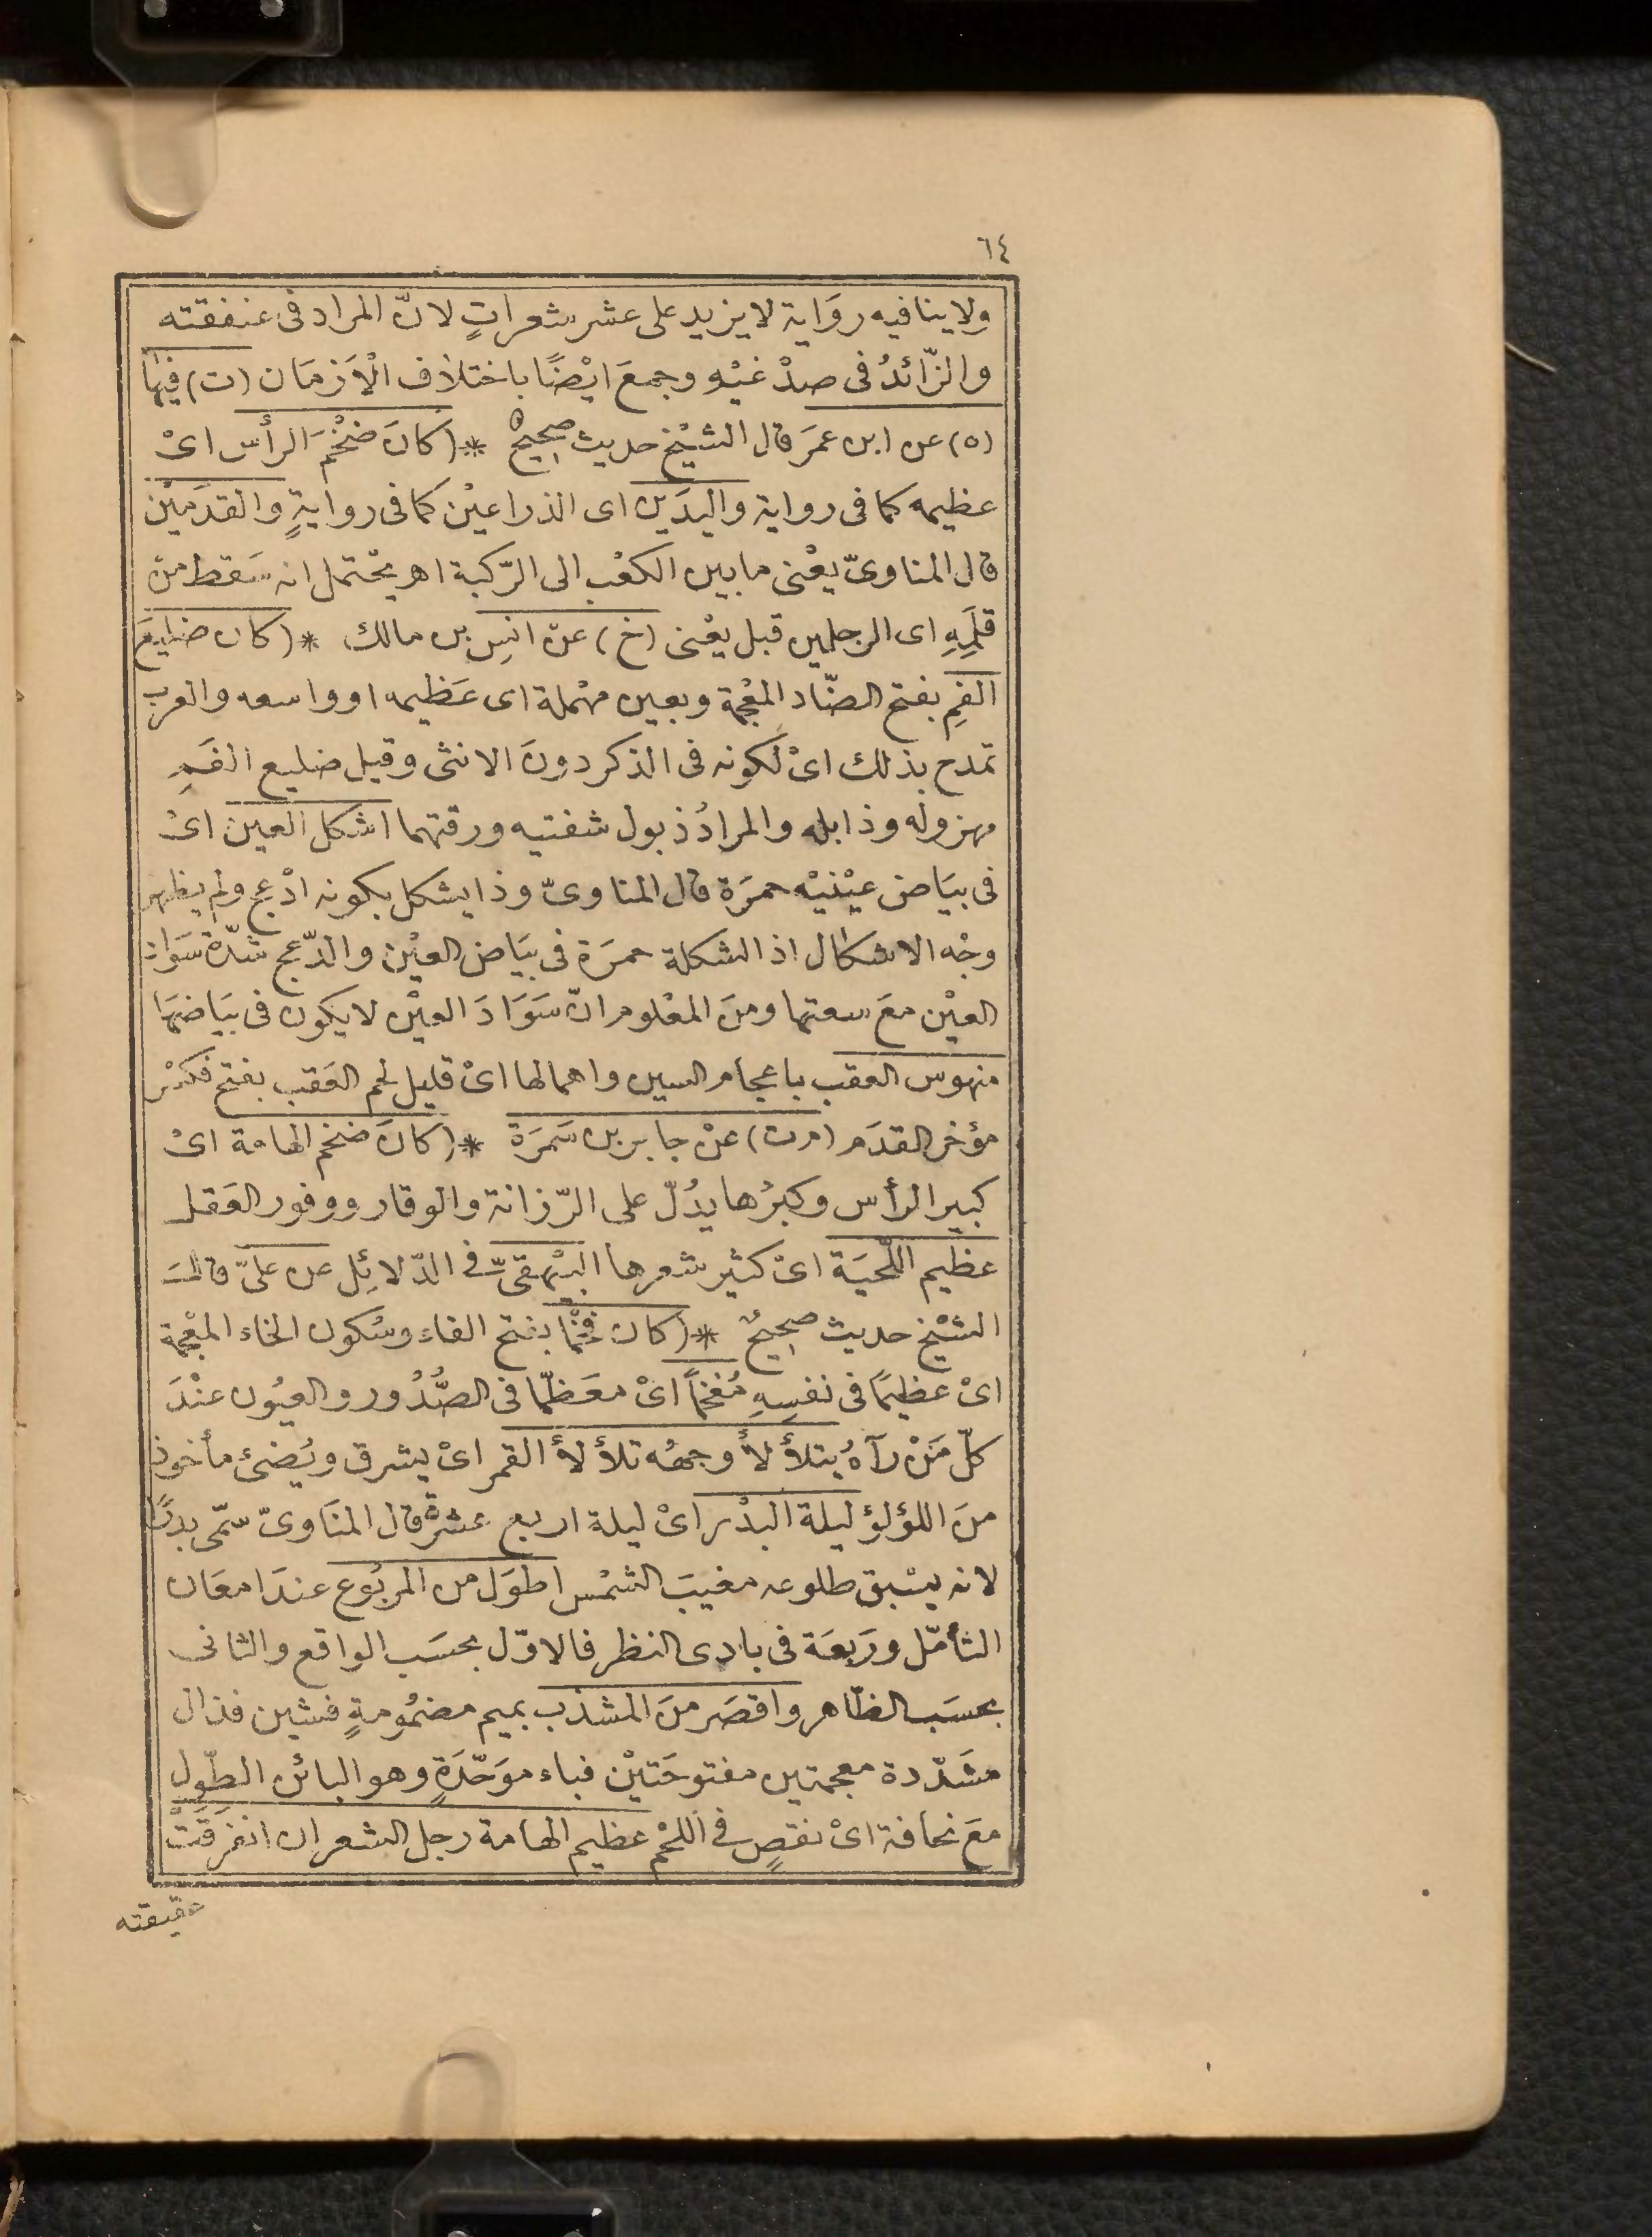 ٦٤
ولا ينافيه روَاية لا يزيد على عشر شعراتٍ لانّ المراد فى عنفقته
والزّائدُ فى صدْغيْه وجمعَ ايْضًا باختلاف الْاَزمَان (ت) فيها
(ه) عن ابن عمرَ قال الشيْخ حديث صحيحٌ * (كانَ ضخْمَ الرأس اىْ
عظيمه كما فى رواية واليدَين اى الذراعيْن كما فى روايةٍ والقدَميْن
قال المناوىّ يعْنى ما بين الكعْب الى الرّكبة اهـ يحْتمل انه سَقط منْ
قلَمِهِ اى الرجلين قبل يعْنى (خ) عنْ انسِ بن مالك * (كان ضليعَ
الفمِ بفتح الضّاد المعْجمة وبعين مهْملة اى عَظيمه او واسعه والعرب
تمدح بذلك اىْ لكونه فى الذكر دونَ الانثى وقيل ضليع الفَمِ
مهزوله وذابله والمرادُ ذبول شفتيه ورقتهما اشكل العين اىْ
فى بيَاض عيْنيْه حمرَة قال المناوىّ وذا يشكل بكونه ادْعج ولم يظهر
وجْه الاشكال اذ الشكلة حمرَة فى بيَاض العيْن والدّعج شدّة سَوَاد
العيْن معَ سعتها ومنَ المعْلوم انّ سَوَادَ العيْن لا يكون فى بيَاضهَا
منهوس العقب باعجام السين واهمالها اىْ قليل لحم العَقب بفتح فكسْر
مؤخر القدَم (م ت) عنْ جابر بن سَمرَة * (كانَ ضخم الهامة اىْ
كبير الرأس وكبرُها يدُلّ على الرّزانة والوقار ووفور العَقل
عظيم اللّحيَة اىْ كثير شعرها البيْهقىّ فى الدّلائِل عن علىّ قالَ
الشيْخ حديث صحيحٌ * (كان فخْمًا بفتح الفاء وسُكون الخاء المعْجمة
اىْ عظيمًا فى نفسِهِ مُفخمًا اىْ معَظّمًا فى الصُّدُور والعيُون عنْدَ
كلّ مَنْ رآهُ يتلأْلأُ وجهُه تلأْلأَ القمر اىْ يشرق ويُضئ مأخوذ
منَ اللؤلؤ ليلة البدْر اىْ ليلة اربع عشرةَ قال المنَاوىّ سمّى بدرًا
لانه يسْبق طلوعه مغيبَ الشمْس اطوَل من المربُوع عندَ امعَان
التأمّل ورَبعَة فى بادى النظر فالاوّل بحسَب الواقع والثانى
بحسَب الظّاهر واقصَر منَ المشذب بميم مضمُومةٍ فشين فذال
مشَدّدة معجمتين مفتوحَتيْن فباء موَحّدَةٍ وهو البائن الطّول
معَ نحافة اىْ نقصٍ فى اللحْم عظيم الهامة رجل الشعر ان انفرَقَتْ
عقيقته